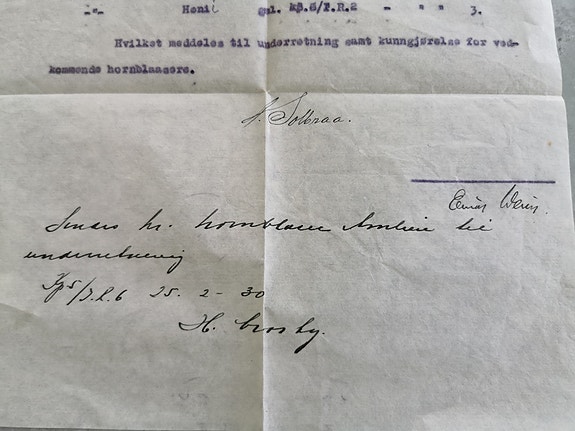 -"- Henil gsl. kp.5/I.R.2 - " " 3.
Hvilket meddeles til underretning samt kunngjørelse for ved-
kommende hornblaasere.
Solbraa.
Einar
Sendes hr. hornblaaser til
underretning
Kp 5/I.R.6 25. 2 - 30
H.